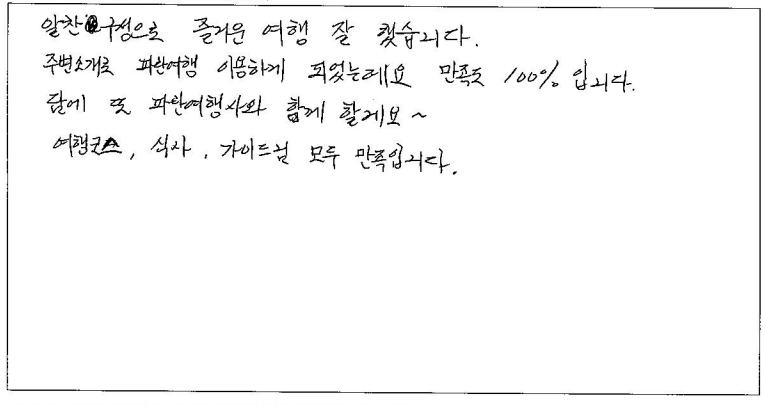 알찬 구성으로 즐거운 여행 잘 했습니다.
주변소개로 파란여행 이용하게 되었는데요 만족도 100% 입니다.
담에 또 파란여행사와 함께 할게요~
여행코스, 식사, 가이드님 모두 만족입니다.